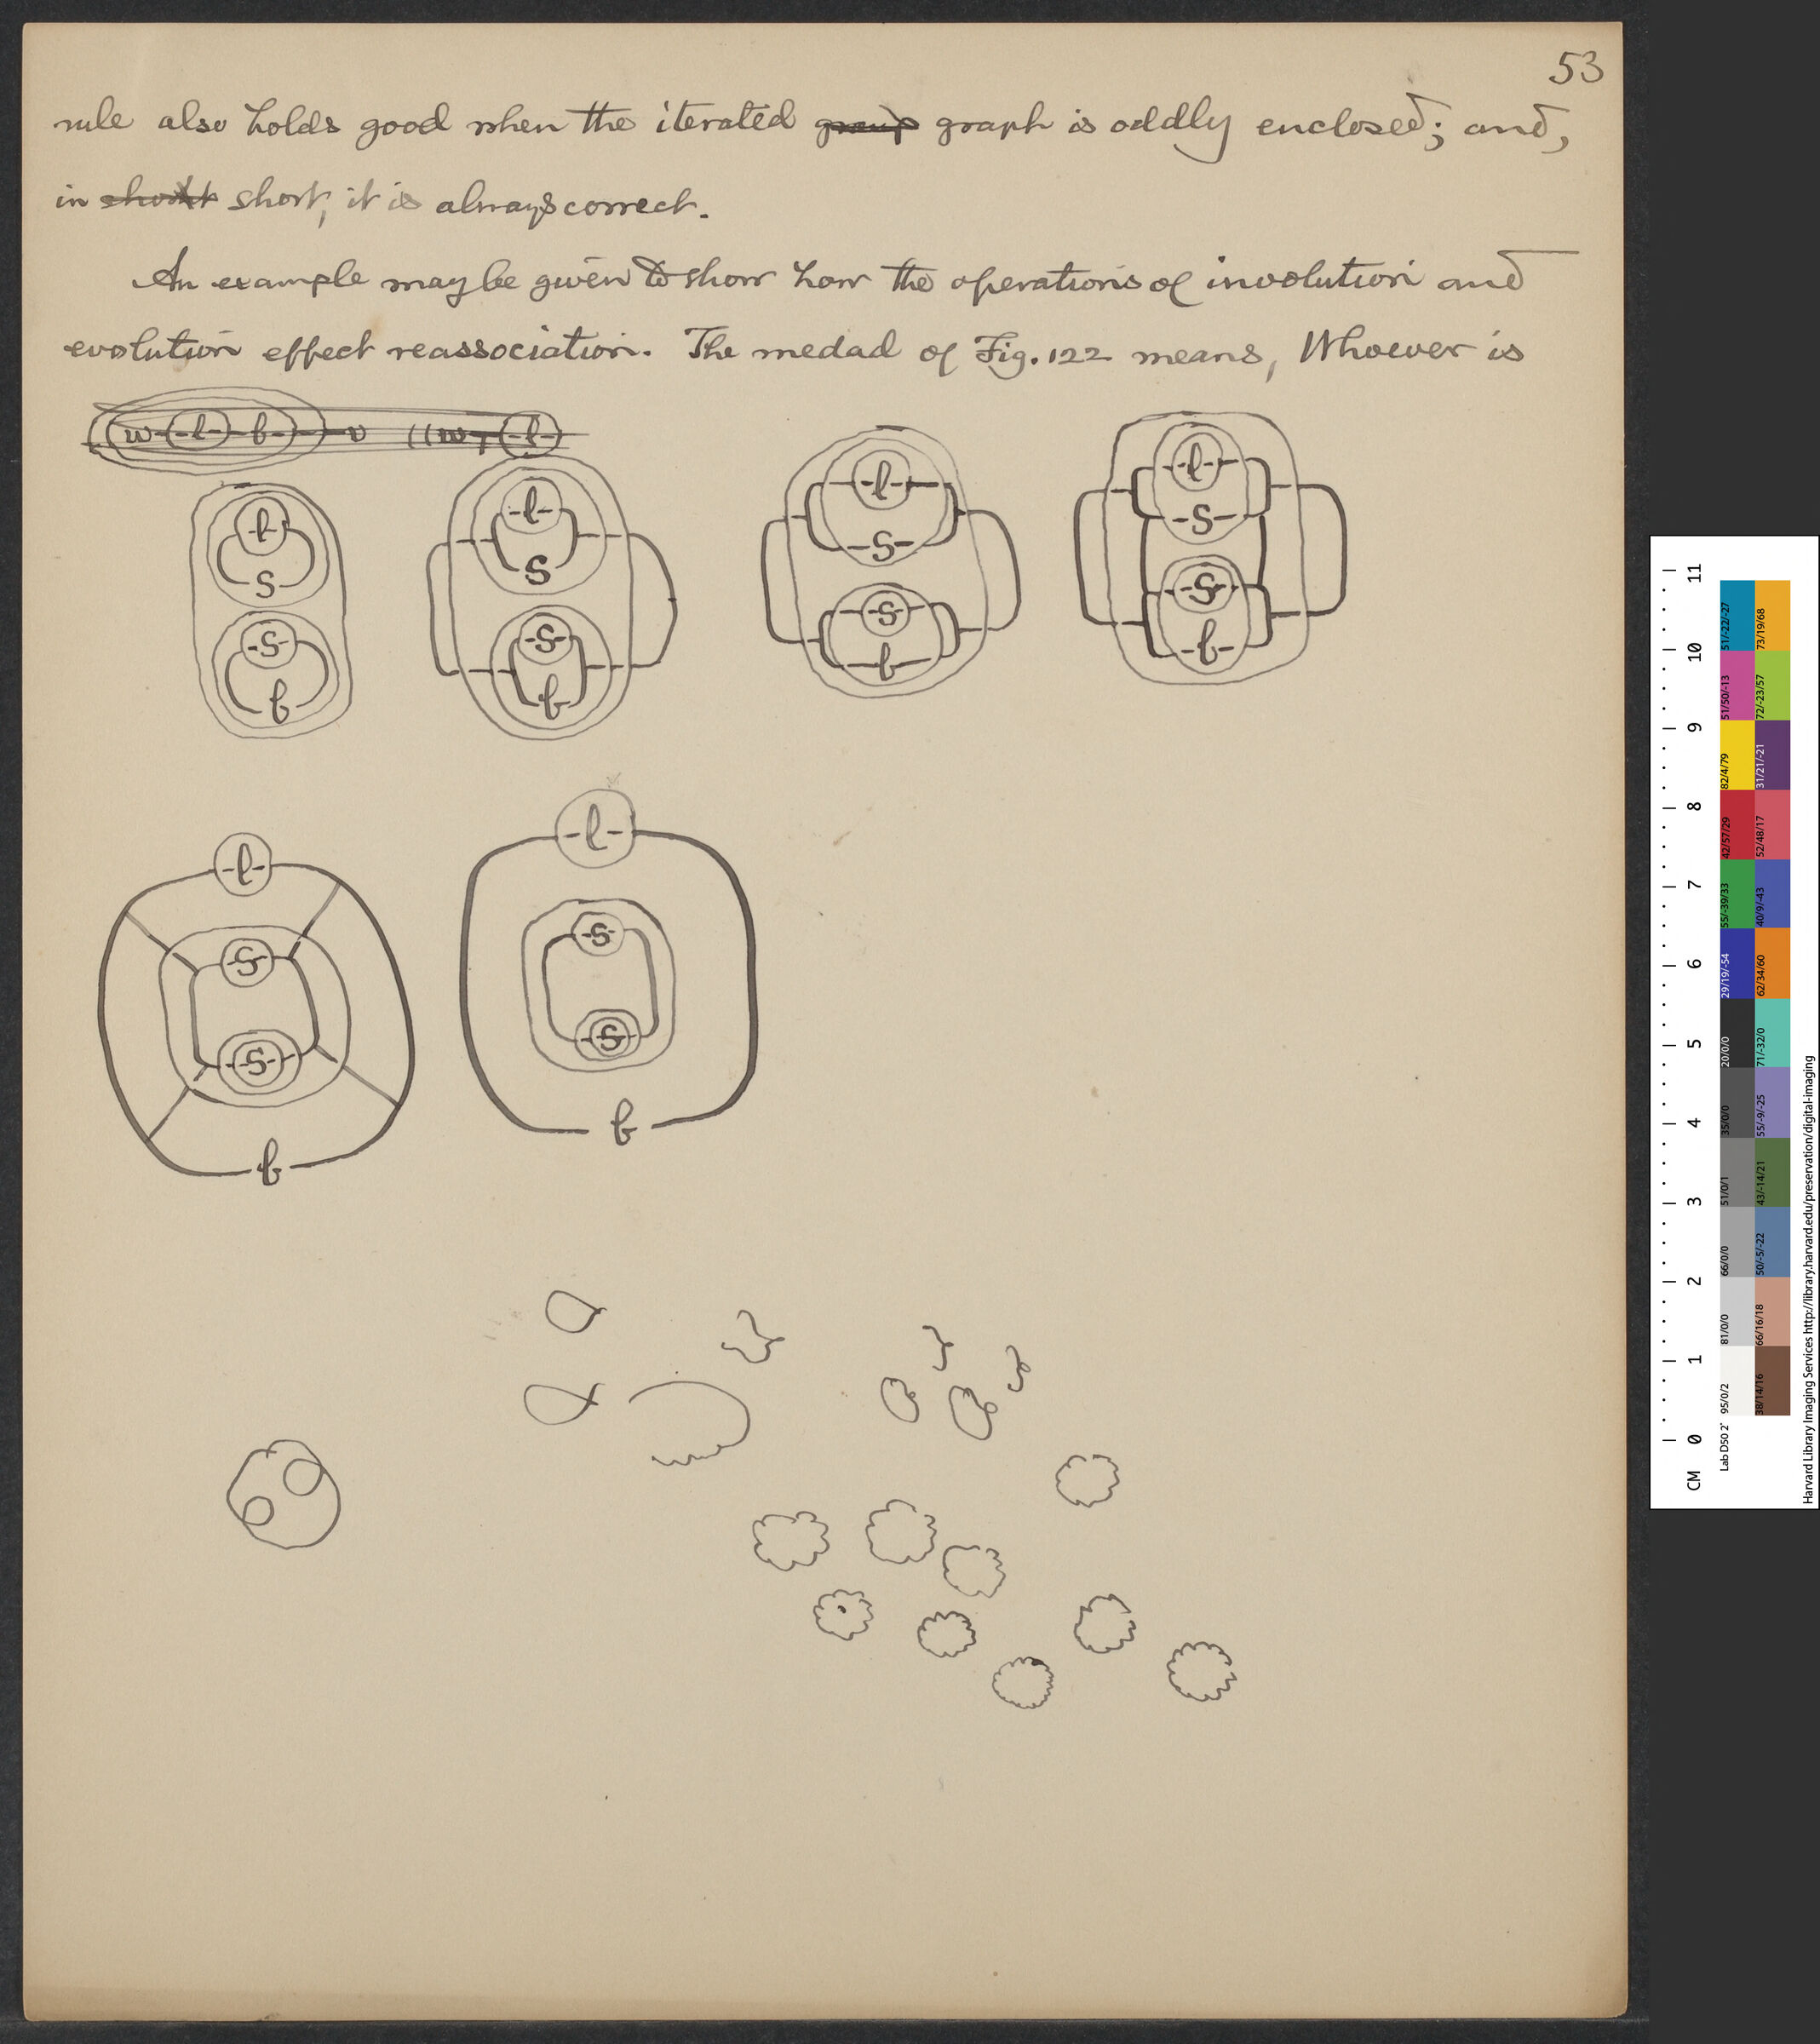 53
rule also holds good when the iterated group graph is oddly enclosed; and,
in short short, it is always correct.
An example may be given to show how the operations of involution and
evolution effect reassociation. The medad of Fig. 122 means, Whoever is
w-(-l-)-b-)-v ((w-(-l-)
-l- -l- -l- -l-
s s -s- -s-
-s- -s- -s- -s-
b b b -b-
-l- -l-
-s- -s-
-s- -s-
b b
CM 0 1 2 3 4 5 6 7 8 9 10 11
Lab D50 2˚ 95/0/2 81/0/0 66/0/0 51/0/1 35/0/0 20/0/0 29/19/-54 55/-39/33 42/57/29 82/4/79 51/50/-13 51/-22/-27
38/14/16 66/16/18 50/-5/-22 43/-14/21 55/-9/-25 71/-32/0 62/34/60 40/9/-43 52/48/17 31/21/-21 72/-23/57 73/19/68
Harvard Library Imaging Services http://library.harvard.edu/preservation/digital-imaging